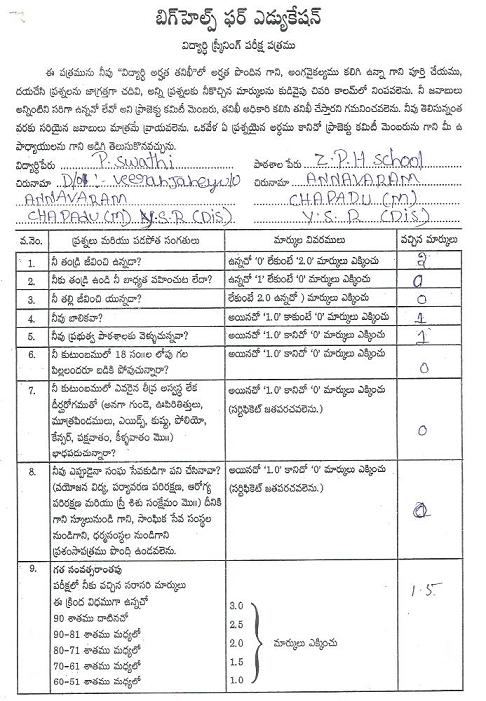 బిగ్‌హెల్ప్ ఫర్ ఎడ్యుకేషన్
విద్యార్థి స్క్రీనింగ్ పరీక్ష పత్రము
ఈ పత్రమును నీవు "విద్యార్థి అర్హత తనిఖీ"లో అర్హత పొందిన గాని, అంగవైకల్యము కలిగి ఉన్నా గాని పూర్తి చేయము,
దయచేసి ప్రశ్నలను జాగ్రత్తగా చదివి, అన్ని ప్రశ్నలకు నీకొచ్చిన మార్కులను కుడివైపు చివరి కాలమ్‌లో నింపవలెను. నీ జవాబులు
అన్నింటిని సరిగా ఉన్నవో లేవో అని ప్రాజెక్టు కమిటీ మెంబరు, తనిఖీ అధికారి కలిసి తనిఖీ చేస్తారని గమనించవలెను. నీవు తెలిసున్నంత
వరకు సరియైన జవాబులు మాత్రమే వ్రాయవలెను. ఒకవేళ ఏ ప్రశ్నయైన అర్థము కానిచో ప్రాజెక్టు కమిటీ మెంబరును గాని మీ ఉ
పాధ్యాయులను గాని అడిగి తెలుసుకొనవచ్చును.
విద్యార్థిపేరు P. Swathi పాఠశాల పేరు Z.P.H school
చిరునామా D/o! - veerah చిరునామా ANNAVARAM
ANNAVARAM CHAPADU (M)
CHAPADU(M) Y.S.R (Dis) Y.S.R (Dis)
వ.నెం. ప్రశ్నలు మరియు పడపోత సంగతులు మార్కుల వివరములు వచ్చిన మార్కులు
1. నీ తండ్రి జీవించి ఉన్నడా? ఉన్నచో '0' లేకుంటే '2.0' మార్కులు ఎక్కించు 2
2. నీకు తండ్రి ఉండి నీ బాధ్యత వహించుట లేదా? ఉన్నచో '1' లేకుంటే '0' మార్కులు ఎక్కించు 0
3. నీ తల్లి జీవించి యున్నదా? లేకుంటే 2.0 ఉన్నచో ) మార్కులు ఎక్కించు 0
4. నీవు బాలికవా? అయినచో '1.0' కాకుంటే '0' మార్కులు ఎక్కించు 1
5. నీవు ప్రభుత్వ పాఠశాలకు వెళ్ళుచున్నవా? అయినచో '1.0' కానిచో '0' మార్కులు ఎక్కించు 1
6. నీ కుటుంబములో 18 సం॥ల లోపు గల అయినచో '1.0' కానిచో '0' మార్కులు ఎక్కించు
పిల్లలందరూ బడికి పోవుచున్నారా? 0
7. నీ కుటుంబములో ఎవరైన తీవ్ర అస్వస్థ లేక అయినచో '1.0' కానిచో '0' మార్కులు ఎక్కించు
దీర్ఘరోగముతో (అనగా గుండె, ఊపిరితిత్తులు, (సర్టిఫికెట్ జతపరచవలెను.)
మూత్రపిండములు, ఎయిడ్స్, కుష్ఠు, పోలియో, 0
కేన్సర్, పక్షవాతం, కీళ్ళవాతం మొ॥)
భాధపడుచున్నారా?
8. నీవు ఎప్పుడైనా సంఘ సేవకుడిగా పని చేసినావా? అయినచో '1.0' కానిచో '0' మార్కులు ఎక్కించు
(వయోజన విద్య, పర్యావరణ పరిరక్షణ, ఆరోగ్య (సర్టిఫికెట్ జతపరచవలెను.)
పరిరక్షణ మరియు స్త్రీ శిశు సంక్షేమం మొ॥) దీనికి 0
గాని స్కూలునుండి గాని, సాంఘిక సేవ సంస్థల
నుండిగాని, ధర్మసంస్థల నుండిగాని
ప్రశంసాపత్రము పొంది ఉండవలెను.
9. గత సంవత్సరాంతపు
పరీక్షలో నీకు వచ్చిన సరాసరి మార్కులు 1.5
ఈ క్రింద విధముగా ఉన్నచో 3.0
90 శాతము దాటినచో 2.5
90-81 శాతము మధ్యలో 2.0 మార్కులు ఎక్కించు
80-71 శాతము మధ్యలో 1.5
70-61 శాతము మధ్యలో 1.0
60-51 శాతము మధ్యలో